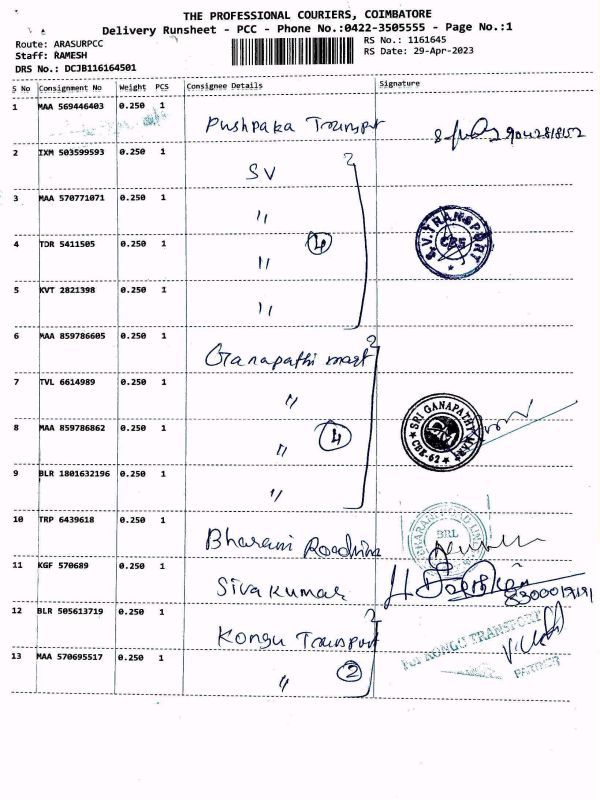 THE PROFESSIONAL COURIERS, COIMBATORE
Delivery Runsheet - PCC - Phone No.:0422-3505555 - Page No.:1
Route: ARASURPCC
RS No.: 1161645
Staff: RAMESH
RS Date: 29-Apr-2023
DRS No.: DCJB116164501
S No Consignment No Weight PCS Consignee Details Signature
1 MAA 569446403 0.250 1 Pushpaka Transput
2 IXM 503599593 0.250 1 SV
3 MAA 570771071 0.250 1 "
4 TDR 5411505 0.250 1 " 4
5 KVT 2821398 0.250 1 "
S.V. TRANSPORT
CBE
6 MAA 859786605 0.250 1 Ganapathi mart
7 TVL 6614989 0.250 1 "
8 MAA 859786862 0.250 1 " 4
9 BLR 1801632196 0.250 1 "
SRI GANAPATHY
CBE-62
10 TRP 6439618 0.250 1 Bharani
BRL
11 KGF 570689 0.250 1 Siva Kumar
12 BLR 505613719 0.250 1 Kongu Transput
For KONGU TRANSPORT
PARTNER
13 MAA 570695517 0.250 1 " 2